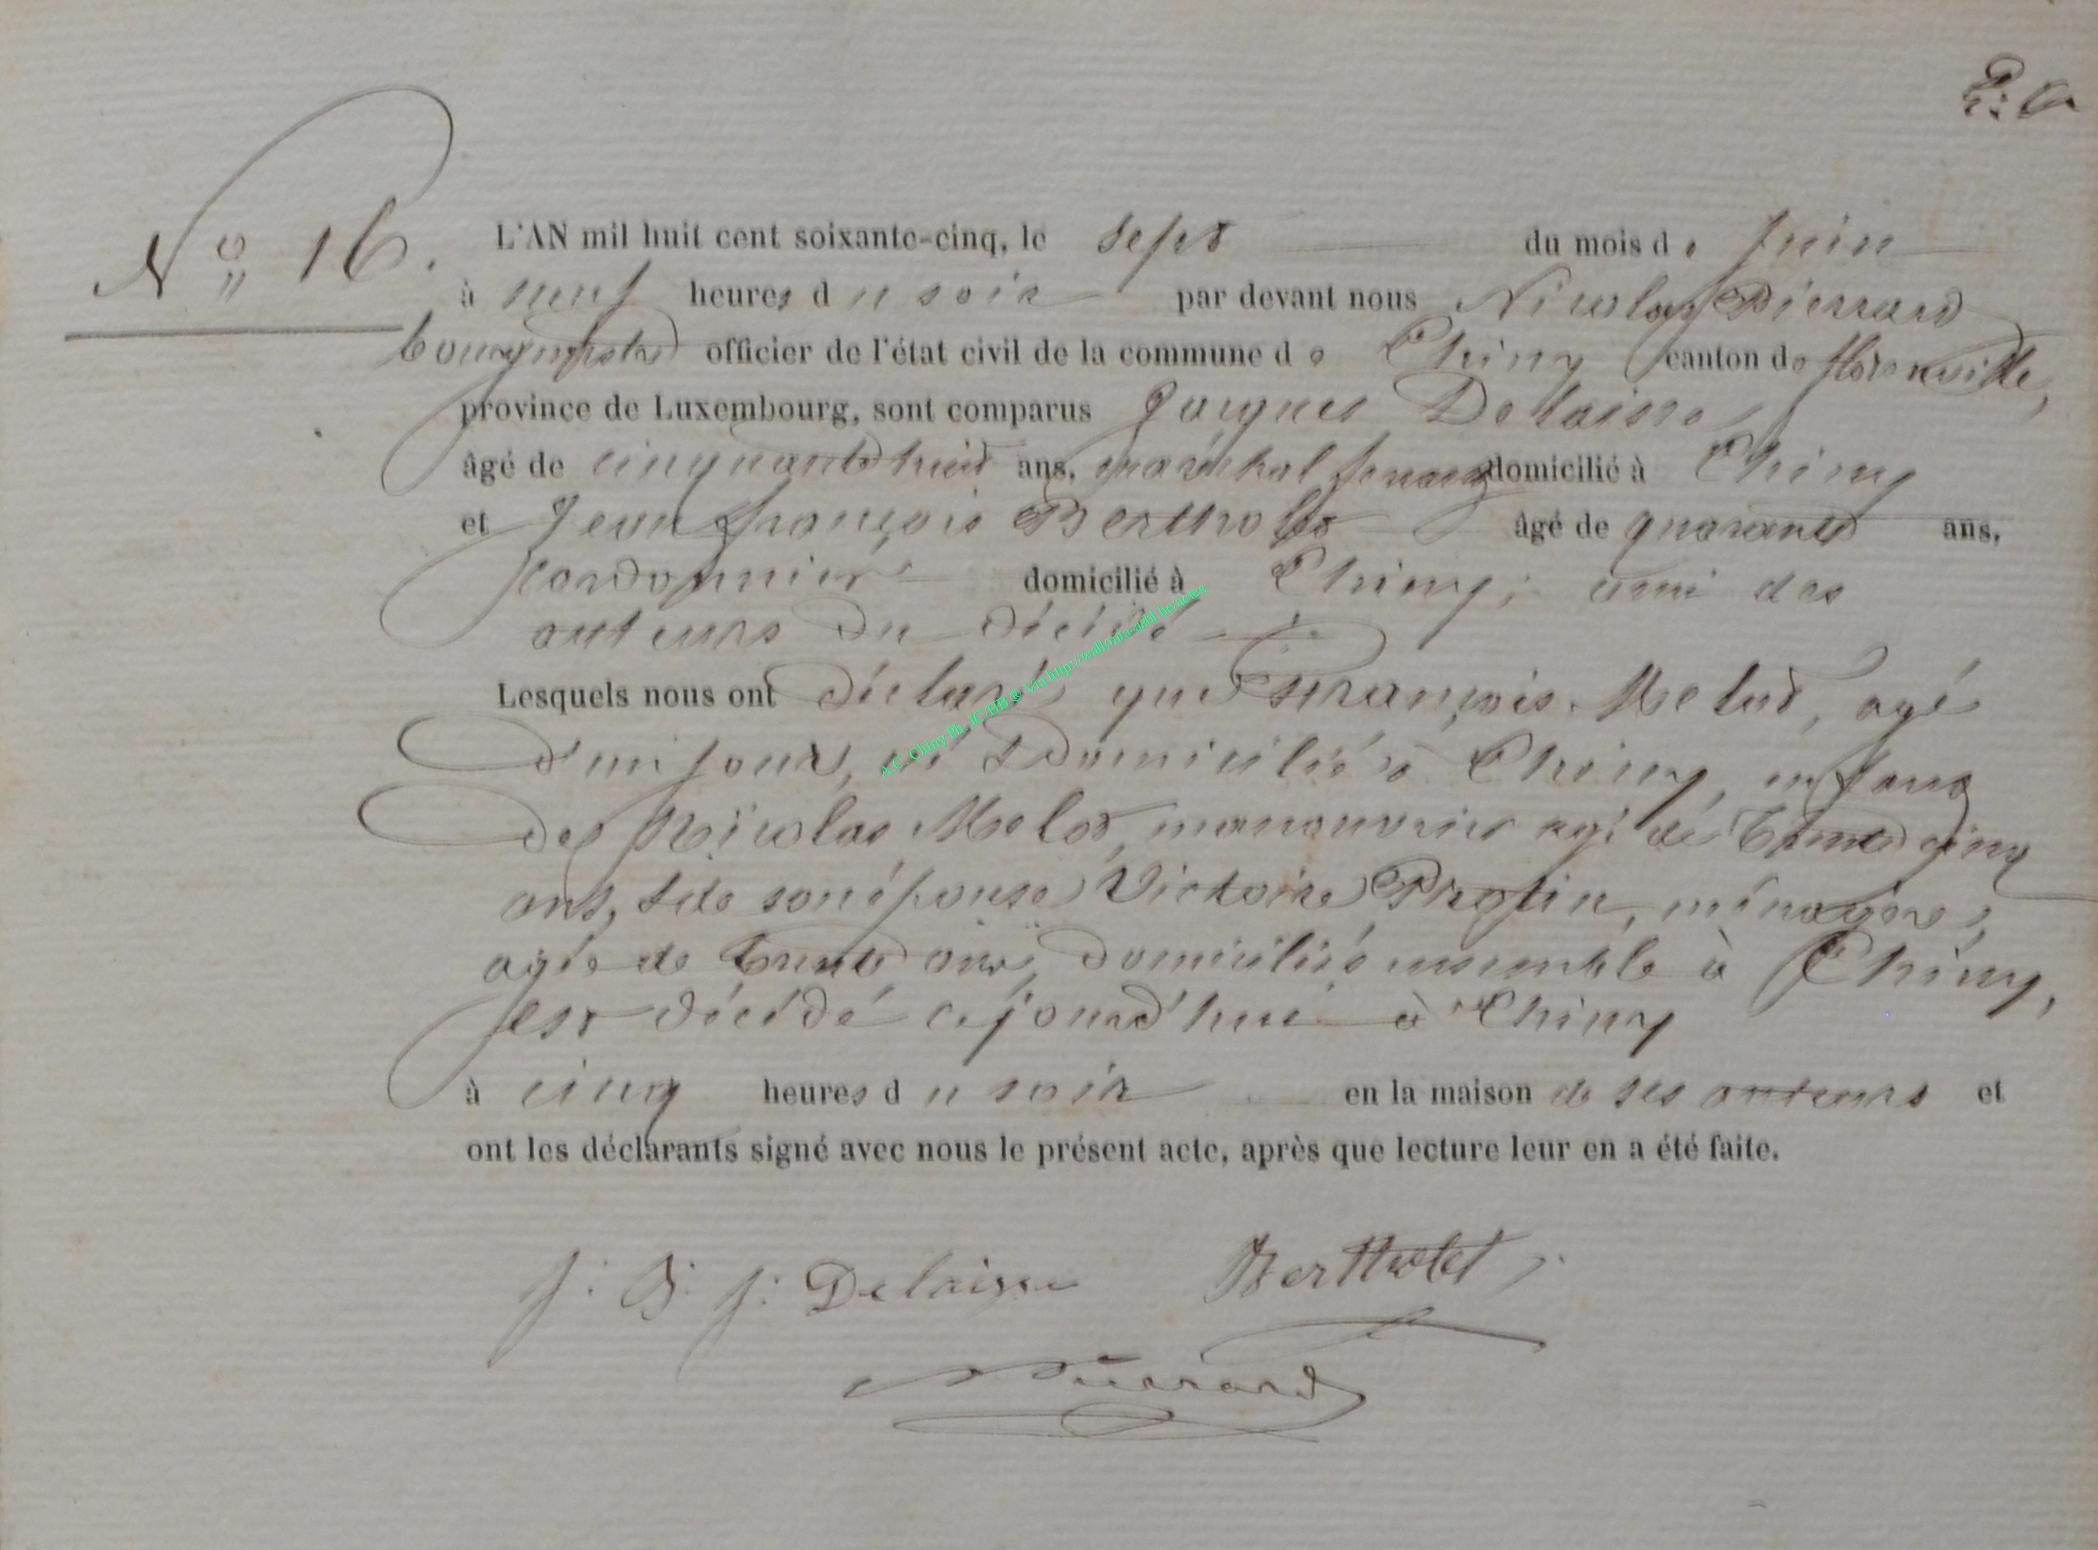 N° 16.
L'AN mil huit cent soixante-cinq, le sept du mois de Juin
à neuf heures du soir par devant nous Nicolas Pierrard
bourgmestre officier de l'état civil de la commune de Chiny canton de florenville,
province de Luxembourg, sont comparus Jacques Delaisse,
âgé de cinquante huit ans, maréchal ferrant domicilié à Chiny
et Jean françois Bertholet âgé de quarante ans,
cordonnier domicilié à Chiny; ami des
auteurs du décédé
Lesquels nous ont déclaré que françois Melot, agé
d'un jour, né & domicilié à Chiny, enfant
de Nicolas Melot, manouvrier agé de trente cinq
ans, & de son épouse Victoire Protin, ménagère,
agée de trente ans, domiciliés ensemble à Chiny,
est décédé cejourd'hui à Chiny
à cinq heures du soir en la maison de ses auteurs et
ont les déclarants signé avec nous le présent acte, après que lecture leur en a été faite.
j: B: j: Delaisse Bertholet
Pierrard